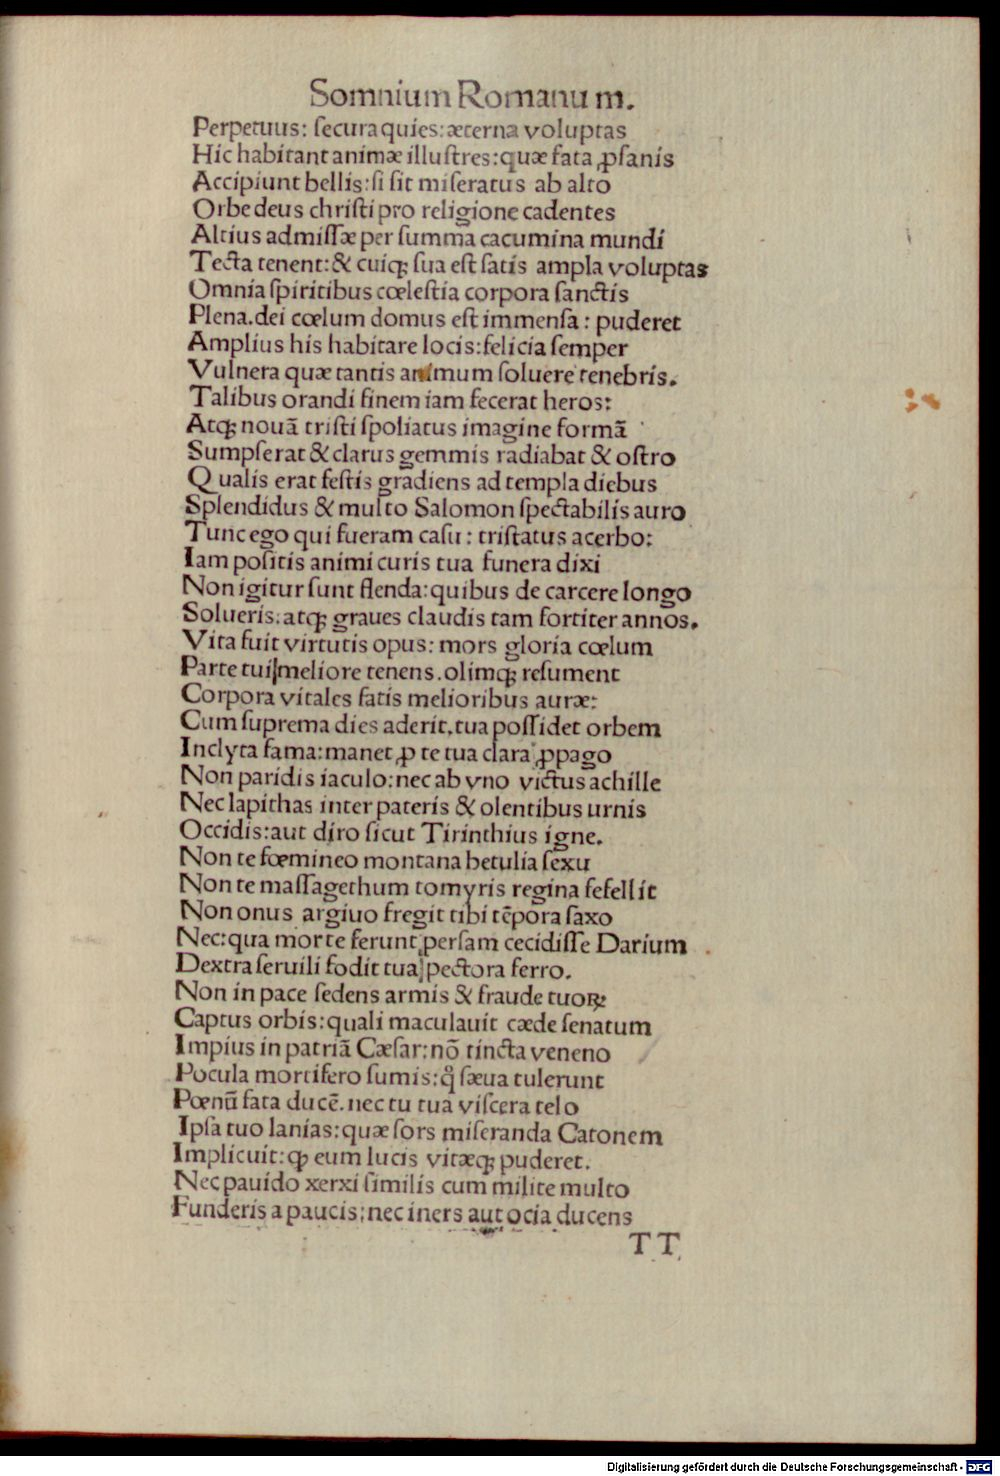 Somnium Romanum.
Perpetuus: ſecura quies: æterna voluptas
Hic habitant animæ illuſtres: quæ fata ꝓfanis
Accipiunt bellis: ſi ſit miſeratus ab alto
Orbe deus chriſti pro religione cadentes
Altius admiſſæ per ſumma cacumina mundi
Tecta tenent: & cuiqꝫ ſua eſt ſatis ampla voluptas
Omnia ſpiritibus cœleſtia corpora ſanctis
Plena. dei cœlum domus eſt immenſa: puderet
Amplius his habitare locis: felicia ſemper
Vulnera quæ tantis animum ſoluere tenebris.
Talibus orandi finem iam fecerat heros:
Atqꝫ nouã triſti ſpoliatus imagine formã
Sumpſerat & clarus gemmis radiabat & oſtro
Qualis erat feſtis gradiens ad templa diebus
Splendidus & multo Salomon ſpectabilis auro
Tunc ego qui fueram caſu: triſtatus acerbo:
Iam poſitis animi curis tua funera dixi
Non igitur ſunt flenda: quibus de carcere longo
Solueris: atqꝫ graues claudis tam fortiter annos.
Vita fuit virtutis opus: mors gloria cœlum
Parte tui meliore tenens. olimqꝫ reſument
Corpora vitales fatis melioribus auræ:
Cum ſuprema dies aderit. tua poſſidet orbem
Inclyta fama: manet ꝓ te tua clara ꝓpago
Non paridis iaculo: nec ab vno victus achille
Nec lapithas inter pateris & olentibus urnis
Occidis: aut diro ſicut Tirinthius igne.
Non te fœmineo montana betulia ſexu
Non te maſſagethum tomyris regina fefellit
Non onus argiuo fregit tibi tẽpora ſaxo
Nec: qua morte ferunt perſam cecidiſſe Darium
Dextra ſeruili fodit tua pectora ferro.
Non in pace ſedens armis & fraude tuoꝝ:
Captus orbis: quali maculauit cæde ſenatum
Impius in patriã Cæſar: nõ tincta veneno
Pocula mortifero ſumis: q̃ ſæua tulerunt
Pœnũ fata ducẽ. nec tu tua viſcera telo
Ipſa tuo lanias: quæ ſors miſeranda Catonem
Implicuit: qꝫ eum lucis vitæqꝫ puderet.
Nec pauido xerxi ſimilis cum milite multo
Funderis a paucis: nec iners aut ocia ducens
TT
Digitalisierung gefördert durch die Deutsche Forschungsgemeinschaft - DFG